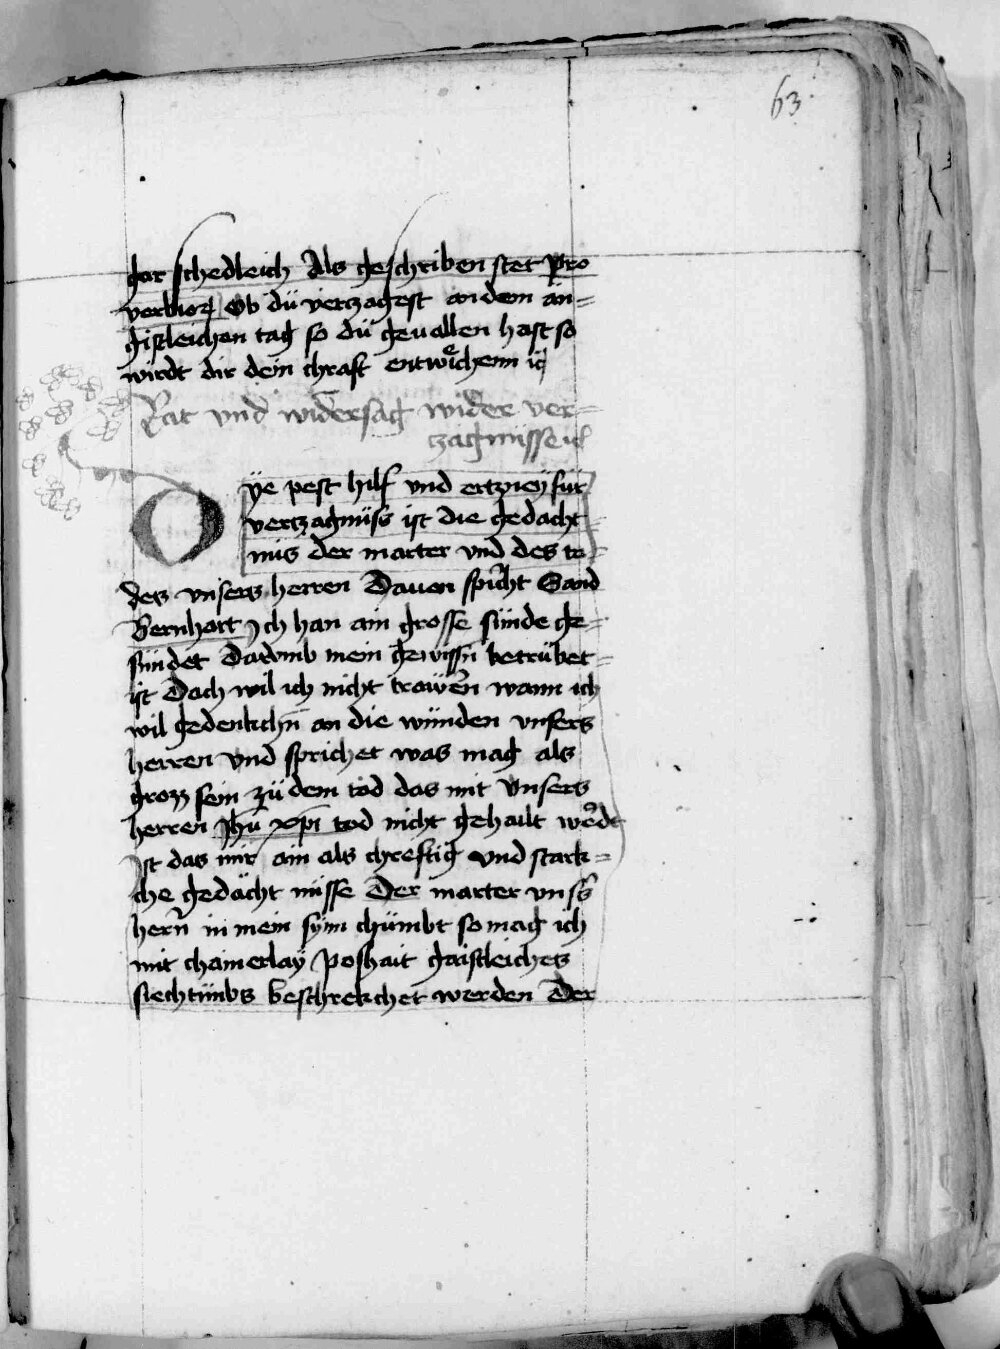 63
gar schedleich Als geschriben stet pro
verbior Ob dü vertzagest an dem an=
gistleichen tag so dü geuallen hast so
wirdt dir dein chraft entwichenn ic
Rat vnd widersag wider ver=
tzagnüsse ic
Dye pest hilf vnd ertzney für
vertzagnüss ist die gedächt=
nüs der marter vnd des to=
des vnsers herren Dauon spricht Sand
Bernhart Ich han ain grosse sünde ge=
sündet Darumb mein gewissn betrübet=
ist Doch wil ich nicht trawren wann ich
wil gedenkchn an die wünden vnsers
herren vnd sprichet was mag als
grozz sein zü dem tod das mit vnsers
herren Jhu xpi tod nicht gehailt werde
Ist das mir ain als chreftig vnd stark=
che gedächt nüsse Der marter vnss
hern in mein synn chümbt so mag ich
mit chainerlay poshait gaistleiches
siechtümbs beschrekchet werden Der